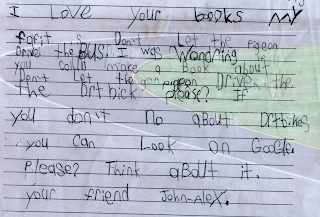 I Love Your books my
fafit is Don't Let the pigeon
Drive the BUS! I was Wondring if
you could make a Book about
Don't Let the pigeon Drive the
the Drtbick please? If
you don't no about Drtbikes
you can Look on Google.
Please? Think about it.
your friend John-Alex.